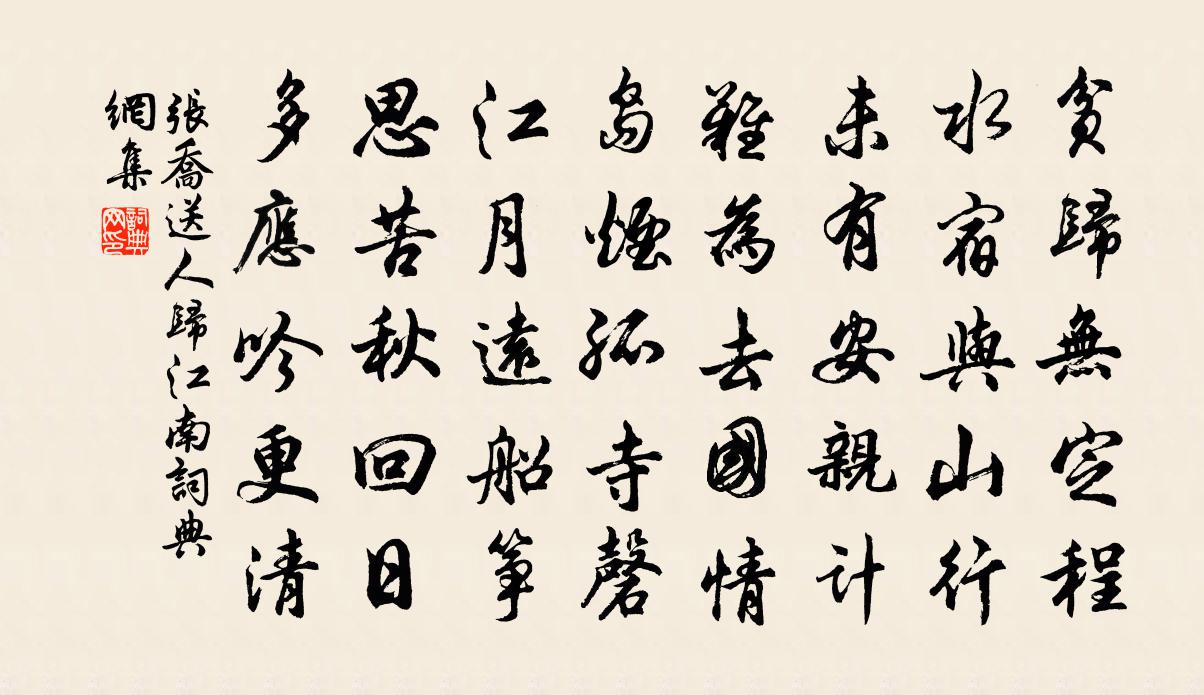 貧歸無定程
水宿與山行
未有安親計
難為去國情
島煙孤寺磬
江月遠船箏
思苦秋回日
多應吟更清
張喬送人歸江南詞典
網集
詞典
网印